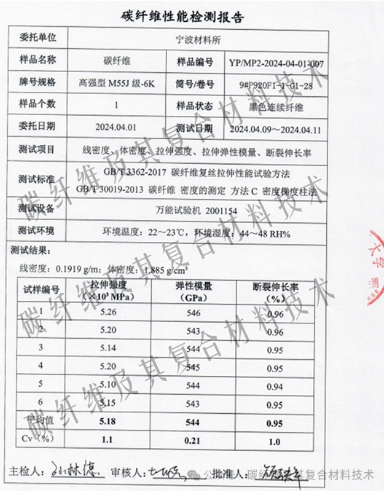 碳纤维性能检测报告
委托单位 宁波材料所
样品名称 碳纤维 样品编号 YP/MP2-2024-04-01-007
牌号规格 高强型 M55J 级-6K 筒号/卷号 9#F920F1-1-G1-28
样品个数 1 样品状态 黑色连续纤维
委托日期 2024.04.01 测试日期 2024.04.09~2024.04.11
测试项目 线密度、体密度、拉伸强度、拉伸弹性模量、断裂伸长率
测试标准 GB/T 3362-2017 碳纤维复丝拉伸性能试验方法
GB/T 30019-2013 碳纤维 密度的测定 方法 C 密度梯度柱法
测试设备 万能试验机 2001154
测试环境 环境温度：22~23℃，环境湿度：44~48 RH%
测试结果：
线密度：0.1919 g/m；体密度：1.885 g/cm³
试样编号 拉伸强度 弹性模量 断裂伸长率
(×10³ MPa) (GPa) (%)
5.26 546 0.96
2 5.20 543 0.96
3 5.14 544 0.95
4 5.20 545 0.95
5 5.10 544 0.94
6 5.15 543 0.95
平均值 5.18 544 0.95
Cv（%） 1.1 0.21 1.0
主检人： 审核人： 批准人：
碳纤维及其复合材料技术
碳纤维及其复合材料技术
碳纤维及其复合材料技术